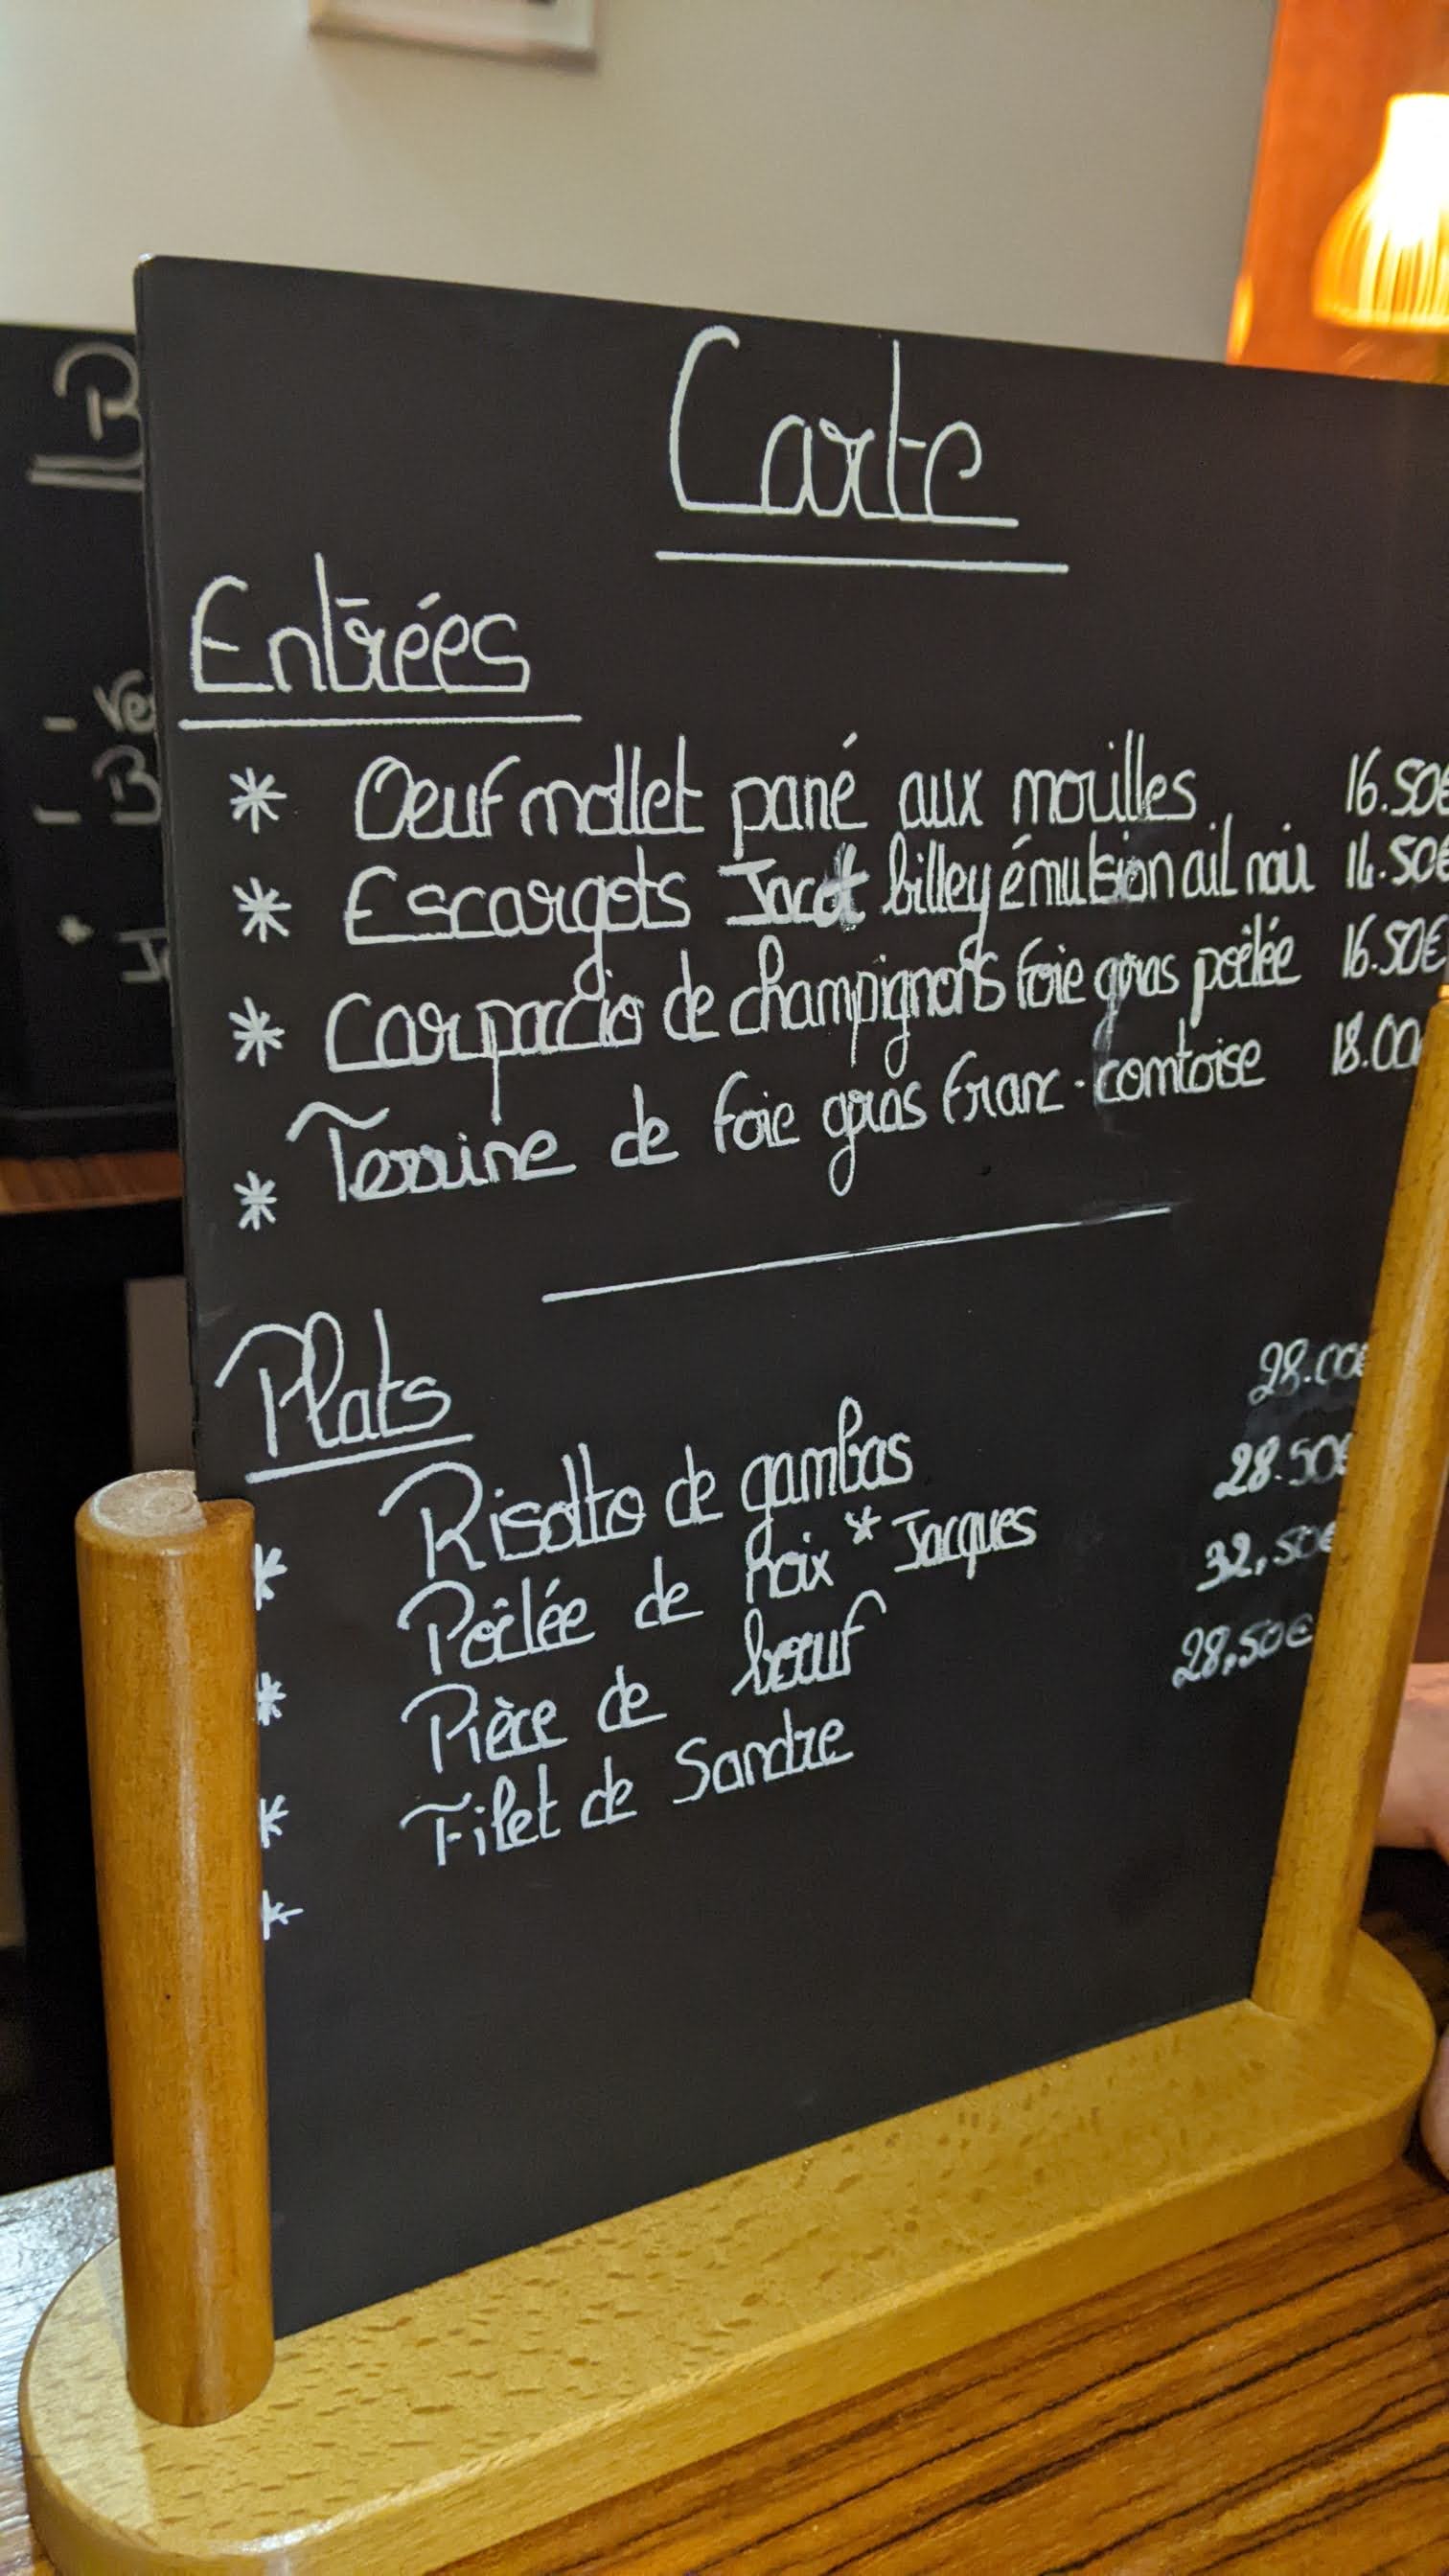 Carte
Entrées
* Oeuf mollet pané aux morilles 16.50€
* Escargots Jacot billey émulsion ail noir 14.50€
* Carpaccio de champignons foie gras poêlée 16.50€
* Terrine de foie gras franc-comtoise 18.00
Plats
* Risotto de gambas 28.00€
* Poêlée de noix * Jacques 28.50€
* Pièce de bœuf 32,50€
* Filet de Sandre 28,50€